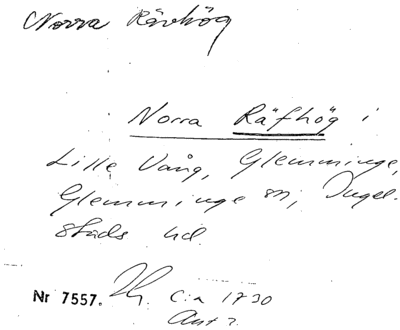 Norra Rävhög
Norra Räfhög i
Lille Vång, Glemminge,
Glemminge sn, Ingel-
stads hd.
Nr 7557. C:a 1730
Ant?